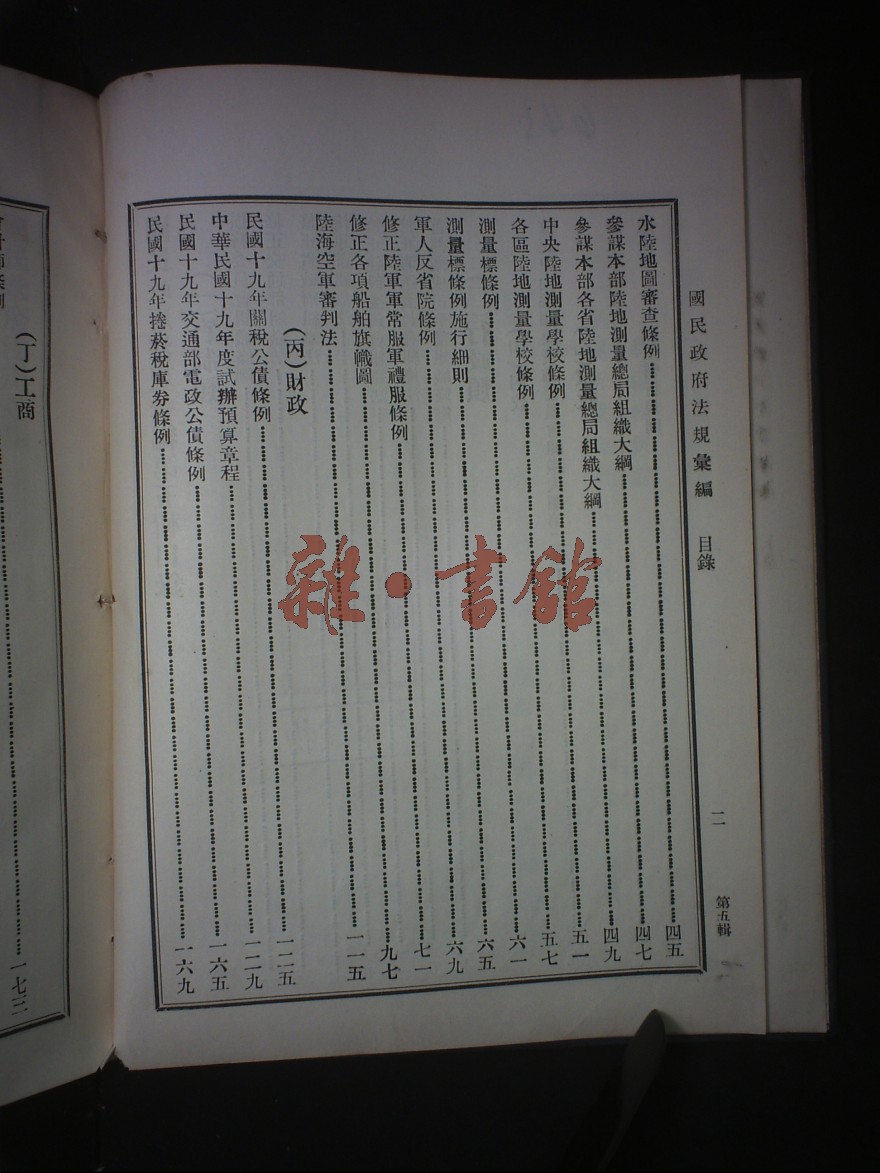 國民政府法規彙編 目錄 二 第五輯
水陸地圖審查條例……四五
參謀本部陸地測量總局組織大綱……四七
參謀本部各省陸地測量總局組織大綱……四九
中央陸地測量學校條例……五一
各區陸地測量學校條例……五七
測量標條例……六一
測量標條例施行細則……六五
軍人反省院條例……六九
修正陸軍軍常服軍禮服條例……七一
修正各項船舶旗幟圖……九七
陸海空軍審判法……一一五
(丙)財政
民國十九年關稅公債條例……一二五
中華民國十九年度試辦預算章程……一二九
民國十九年交通部電政公債條例……一六五
民國十九年捲菸稅庫券條例……一六九
(丁)工商
條例……一七三
雜·書館